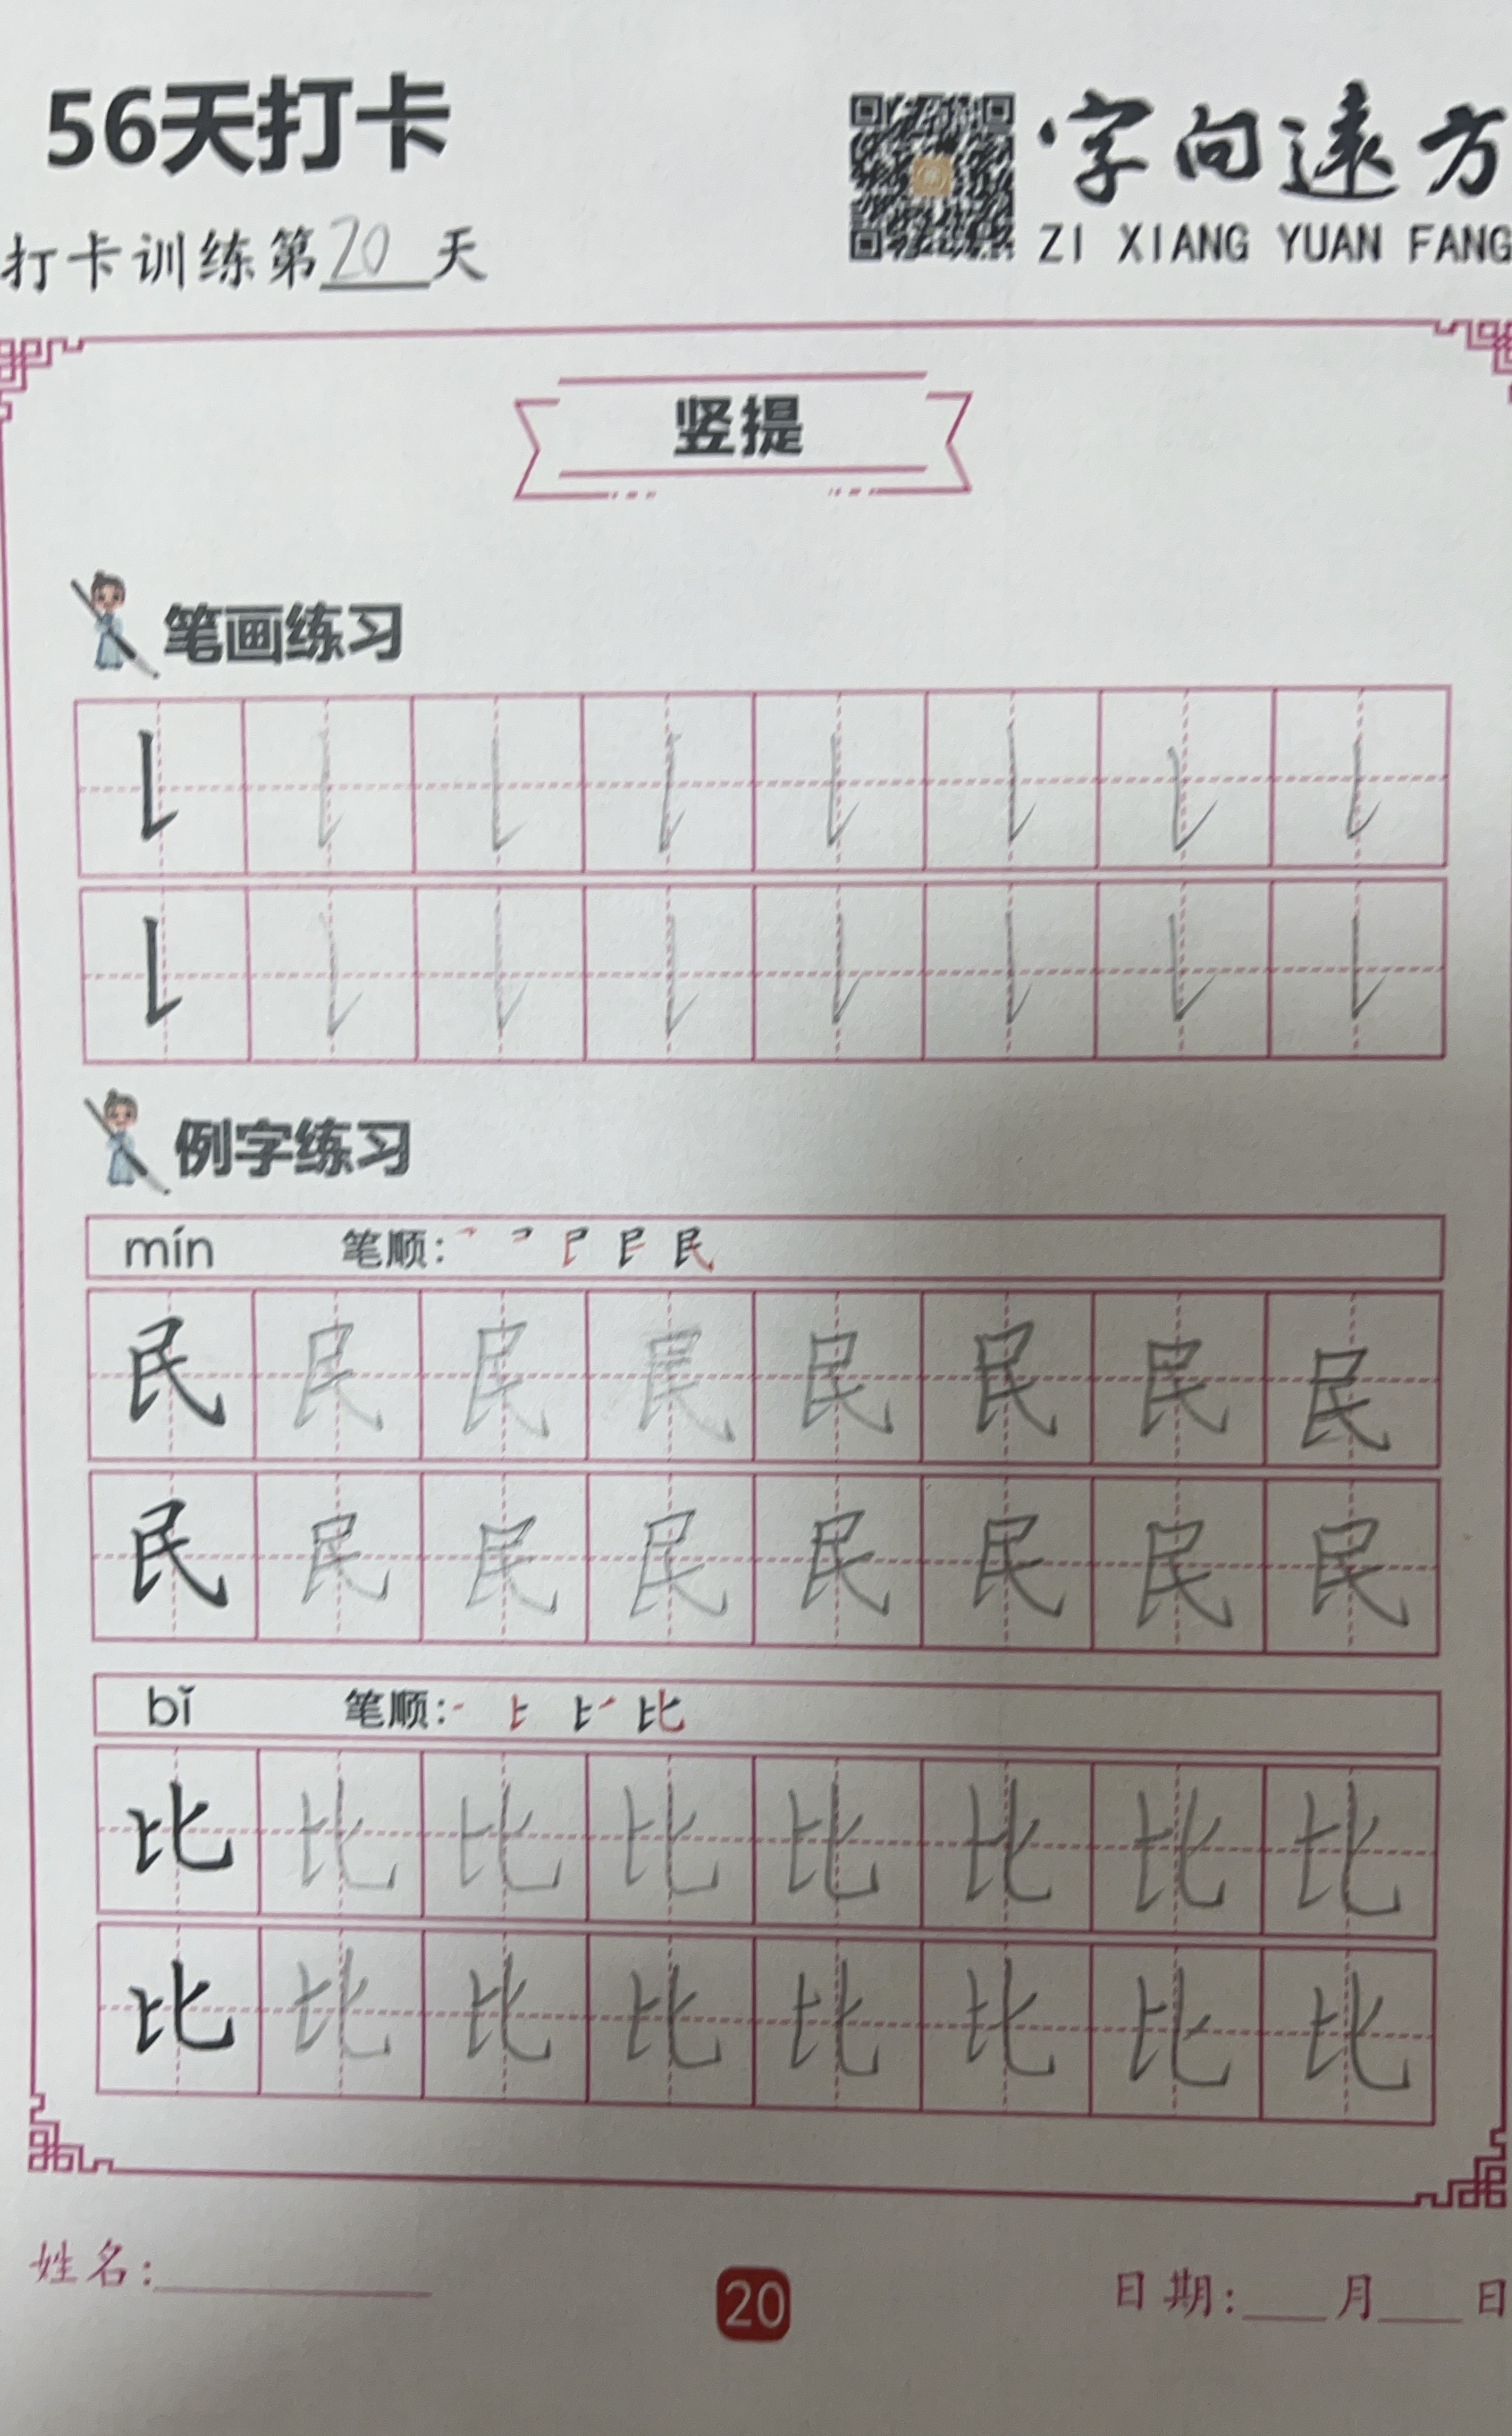 56天打卡
字向遠方
ZI XIANG YUAN FANG
打卡训练第20天
竖提
笔画练习
例字练习
mín 笔顺: 民
民 民 民 民 民 民 民 民
民 民 民 民 民 民 民 民
bǐ 笔顺: 比
比 比 比 比 比 比 比 比
比 比 比 比 比 比 比 比
姓名:
20
日期: 月 日